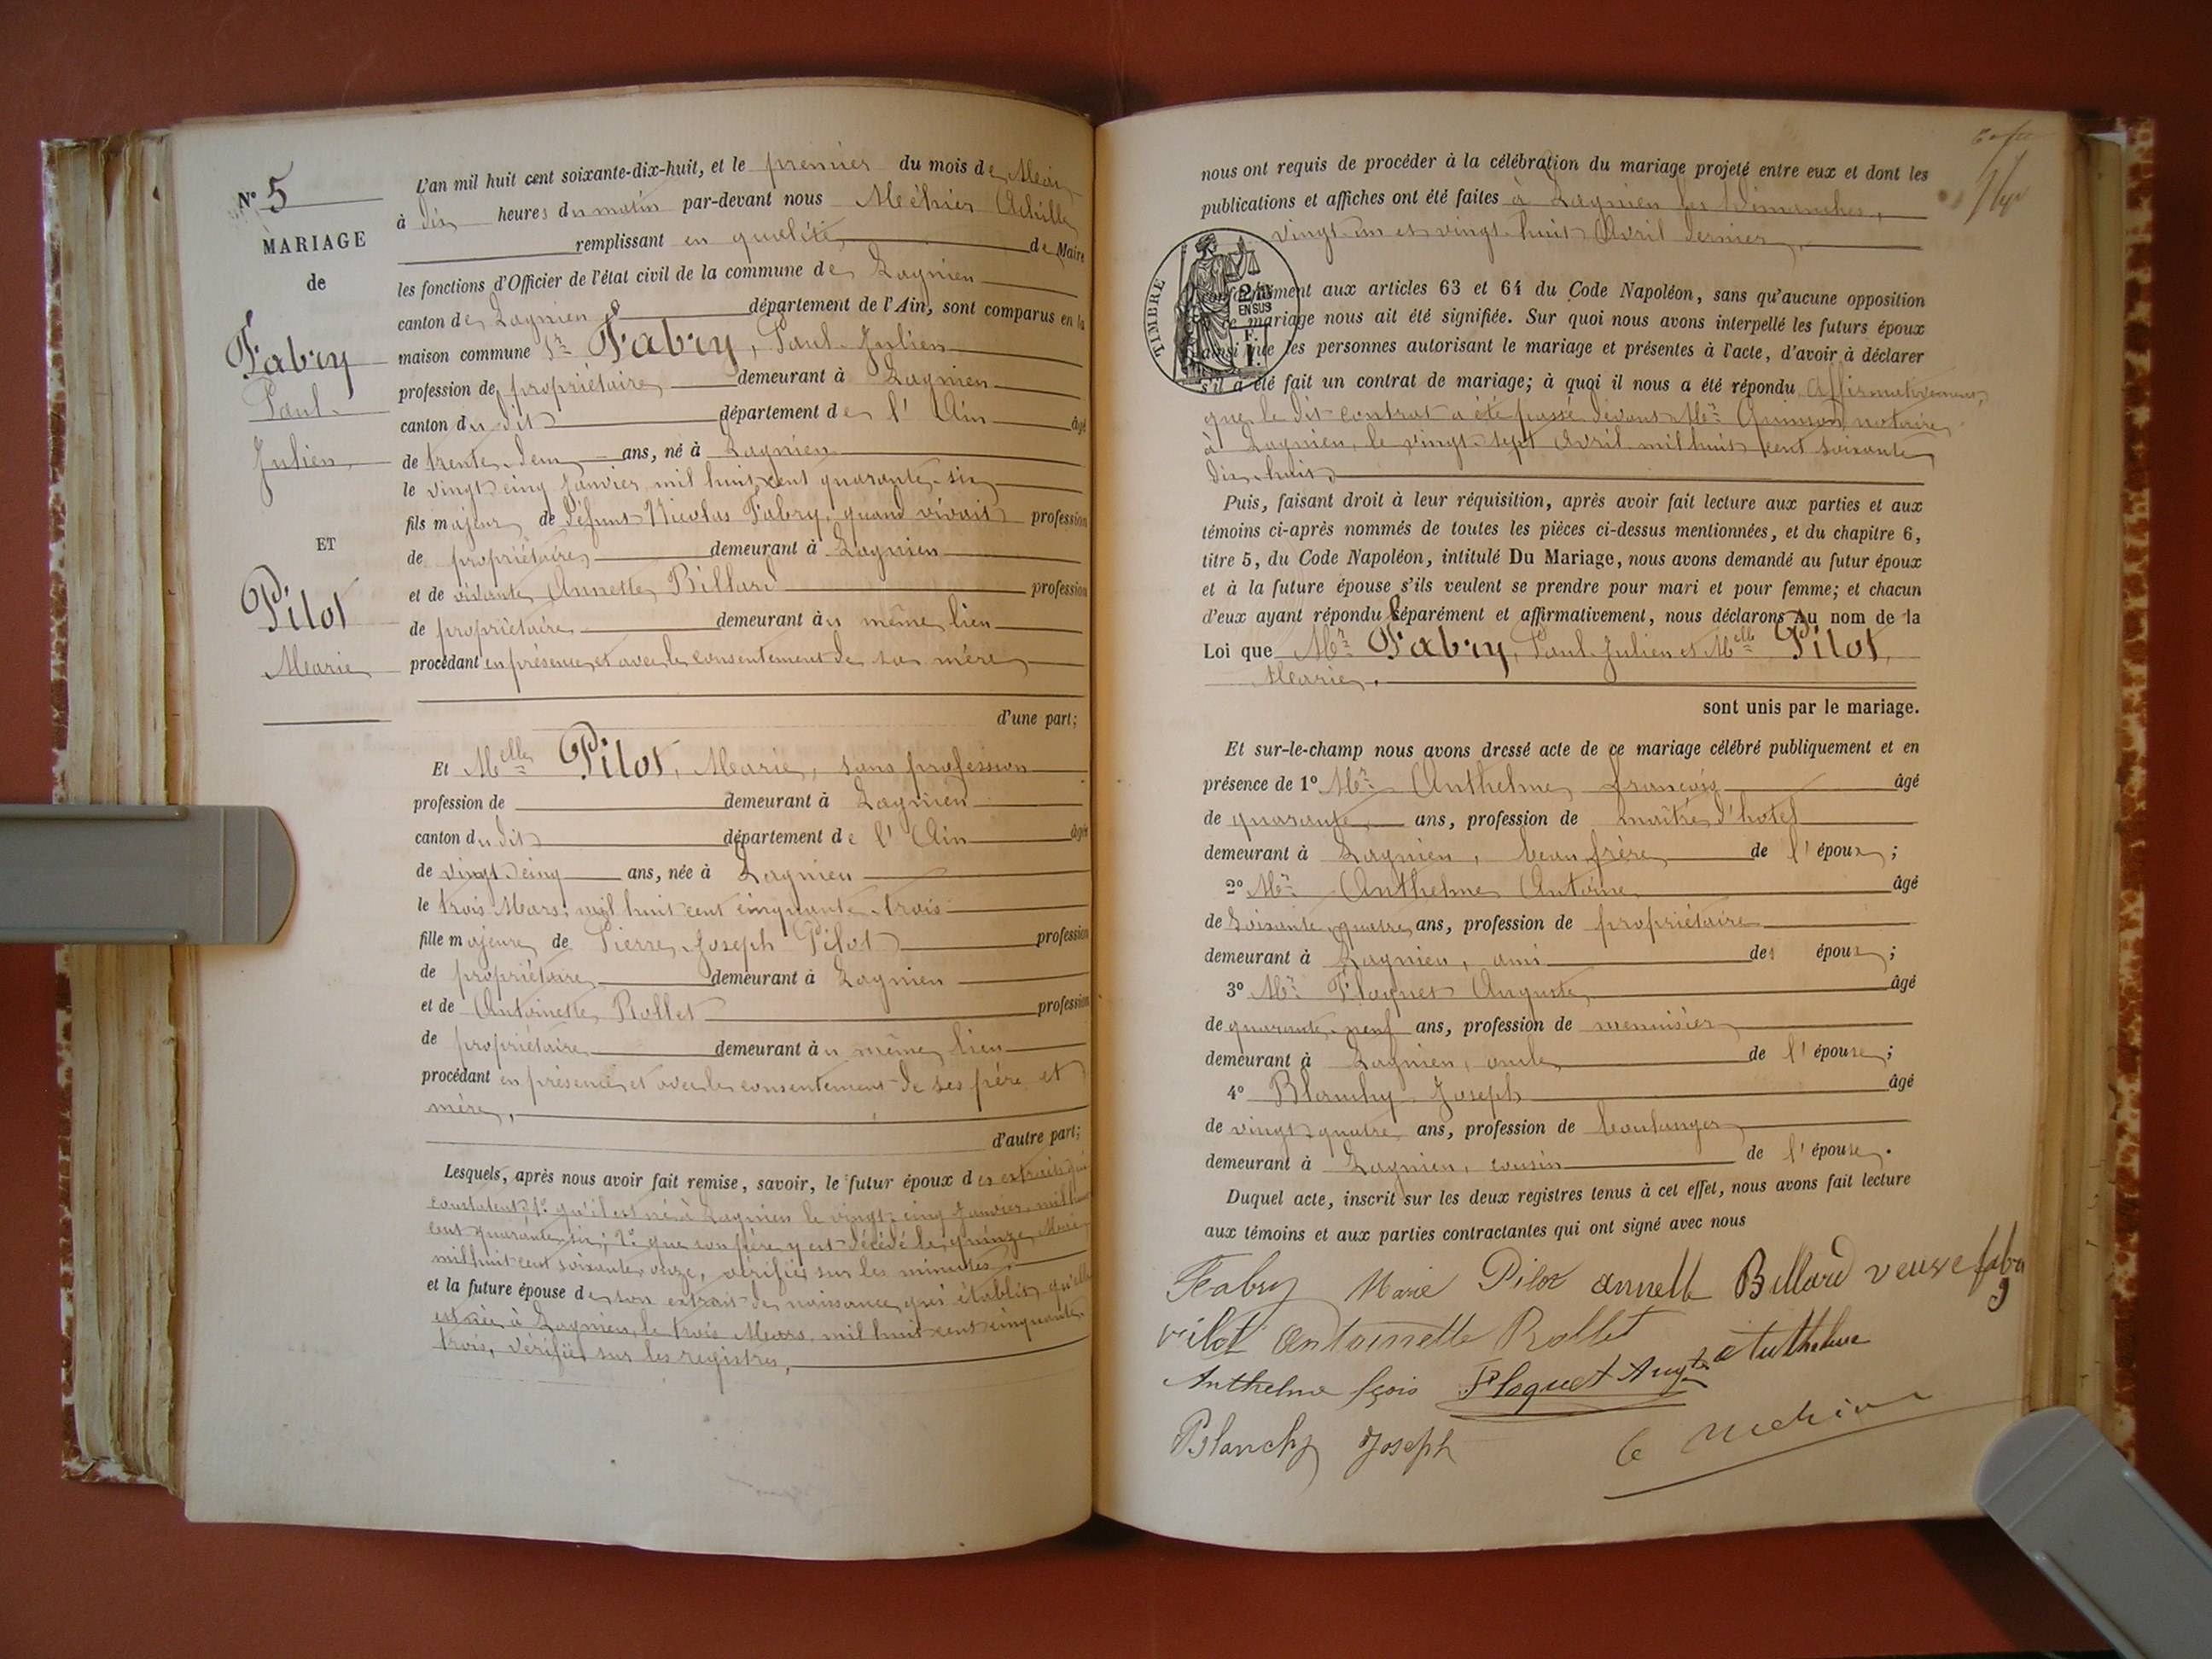 N° 5
MARIAGE
de
Fabry
Paul
Julien
ET
Pilot
Marie
L'an mil huit cent soixante-dix-huit, et le premier du mois de Mai
à dix heures du matin par-devant nous Méhier Achille
remplissant en qualité de Maire
les fonctions d'Officier de l'état civil de la commune de Lagnieu
canton de Lagnieu département de l'Ain, sont comparus en la
maison commune Sr Fabry, Paul Julien
profession de propriétaire demeurant à Lagnieu
canton du dit département de l'Ain âgé
de trente deux ans, né à Lagnieu
le vingt cinq Janvier mil huit cent quarante-six
fils majeur de défunt Nicolas Fabry, quand vivait profession
de propriétaire demeurant à Lagnieu
et de vivante Annette Billard profession
de propriétaire demeurant au même lieu
procédant en présence et avec le consentement de sa mère
d'une part;
Et Melle Pilot, Marie, sans profession
profession de demeurant à Lagnieu
canton du dit département de l'Ain âgée
de vingt cinq ans, née à Lagnieu
le trois Mars, mil huit cent cinquante trois
fille majeure de Pierre Joseph Pilot profession
de propriétaire demeurant à Lagnieu
et de Antoinette Rollet profession
de propriétaire demeurant au même lieu
procédant en présence et avec le consentement de ses père et
mère,
d'autre part;
Lesquels, après nous avoir fait remise, savoir, le futur époux des extraits qui
constatent 1° qu'il est né à Lagnieu le vingt-cinq Janvier mil huit
cent quarante six; 2° que son père y est décédé le quinze Mai
mil huit cent soixante onze, vérifiés sur les minutes.
et la future épouse de son extrait de naissance qui établit qu'elle
est née à Lagnieu, le trois Mars, mil huit cent cinquante
trois, vérifié sur les registres,
nous ont requis de procéder à la célébration du mariage projeté entre eux et dont les
publications et affiches ont été faites à Lagnieu les Dimanches,
vingt-un et vingt-huit Avril dernier,
TIMBRE
2/10 EN SUS
conformément aux articles 63 et 64 du Code Napoléon, sans qu'aucune opposition
à ce mariage nous ait été signifiée. Sur quoi nous avons interpellé les futurs époux
ainsi que les personnes autorisant le mariage et présentes à l'acte, d'avoir à déclarer
s'il a été fait un contrat de mariage; à quoi il nous a été répondu Affirmativement,
que le dit contrat a été passé devant Mr notaire
à Lagnieu, le vingt-sept Avril mil huit cent soixante
dix-huit
Puis, faisant droit à leur réquisition, après avoir fait lecture aux parties et aux
témoins ci-après nommés de toutes les pièces ci-dessus mentionnées, et du chapitre 6,
titre 5, du Code Napoléon, intitulé Du Mariage, nous avons demandé au futur époux
et à la future épouse s'ils veulent se prendre pour mari et pour femme; et chacun
d'eux ayant répondu séparément et affirmativement, nous déclarons Au nom de la
Loi que Mr Fabry, Paul Julien et Melle Pilot,
Marie,
sont unis par le mariage.
Et sur-le-champ nous avons dressé acte de ce mariage célébré publiquement et en
présence de 1° Mr Anthelme François âgé
de quarante ans, profession de maître d'hotel
demeurant à Lagnieu, beau frère de l'époux;
2° Mr Anthelme Antoine âgé
de soixante quatre ans, profession de propriétaire
demeurant à Lagnieu, ami des époux;
3° Mr Floquet Auguste, âgé
de quarante-neuf ans, profession de menuisier
demeurant à Lagnieu, oncle de l'épouse;
4° Blanchy Joseph âgé
de vingt quatre ans, profession de boulanger
demeurant à Lagnieu, cousin de l'épouse.
Duquel acte, inscrit sur les deux registres tenus à cet effet, nous avons fait lecture
aux témoins et aux parties contractantes qui ont signé avec nous
Fabry Marie Pilot annette Billard veuve fabry
pilot antoinette Rollet
Anthelme fçois Floquet Augte anthelme
Blanchy Joseph